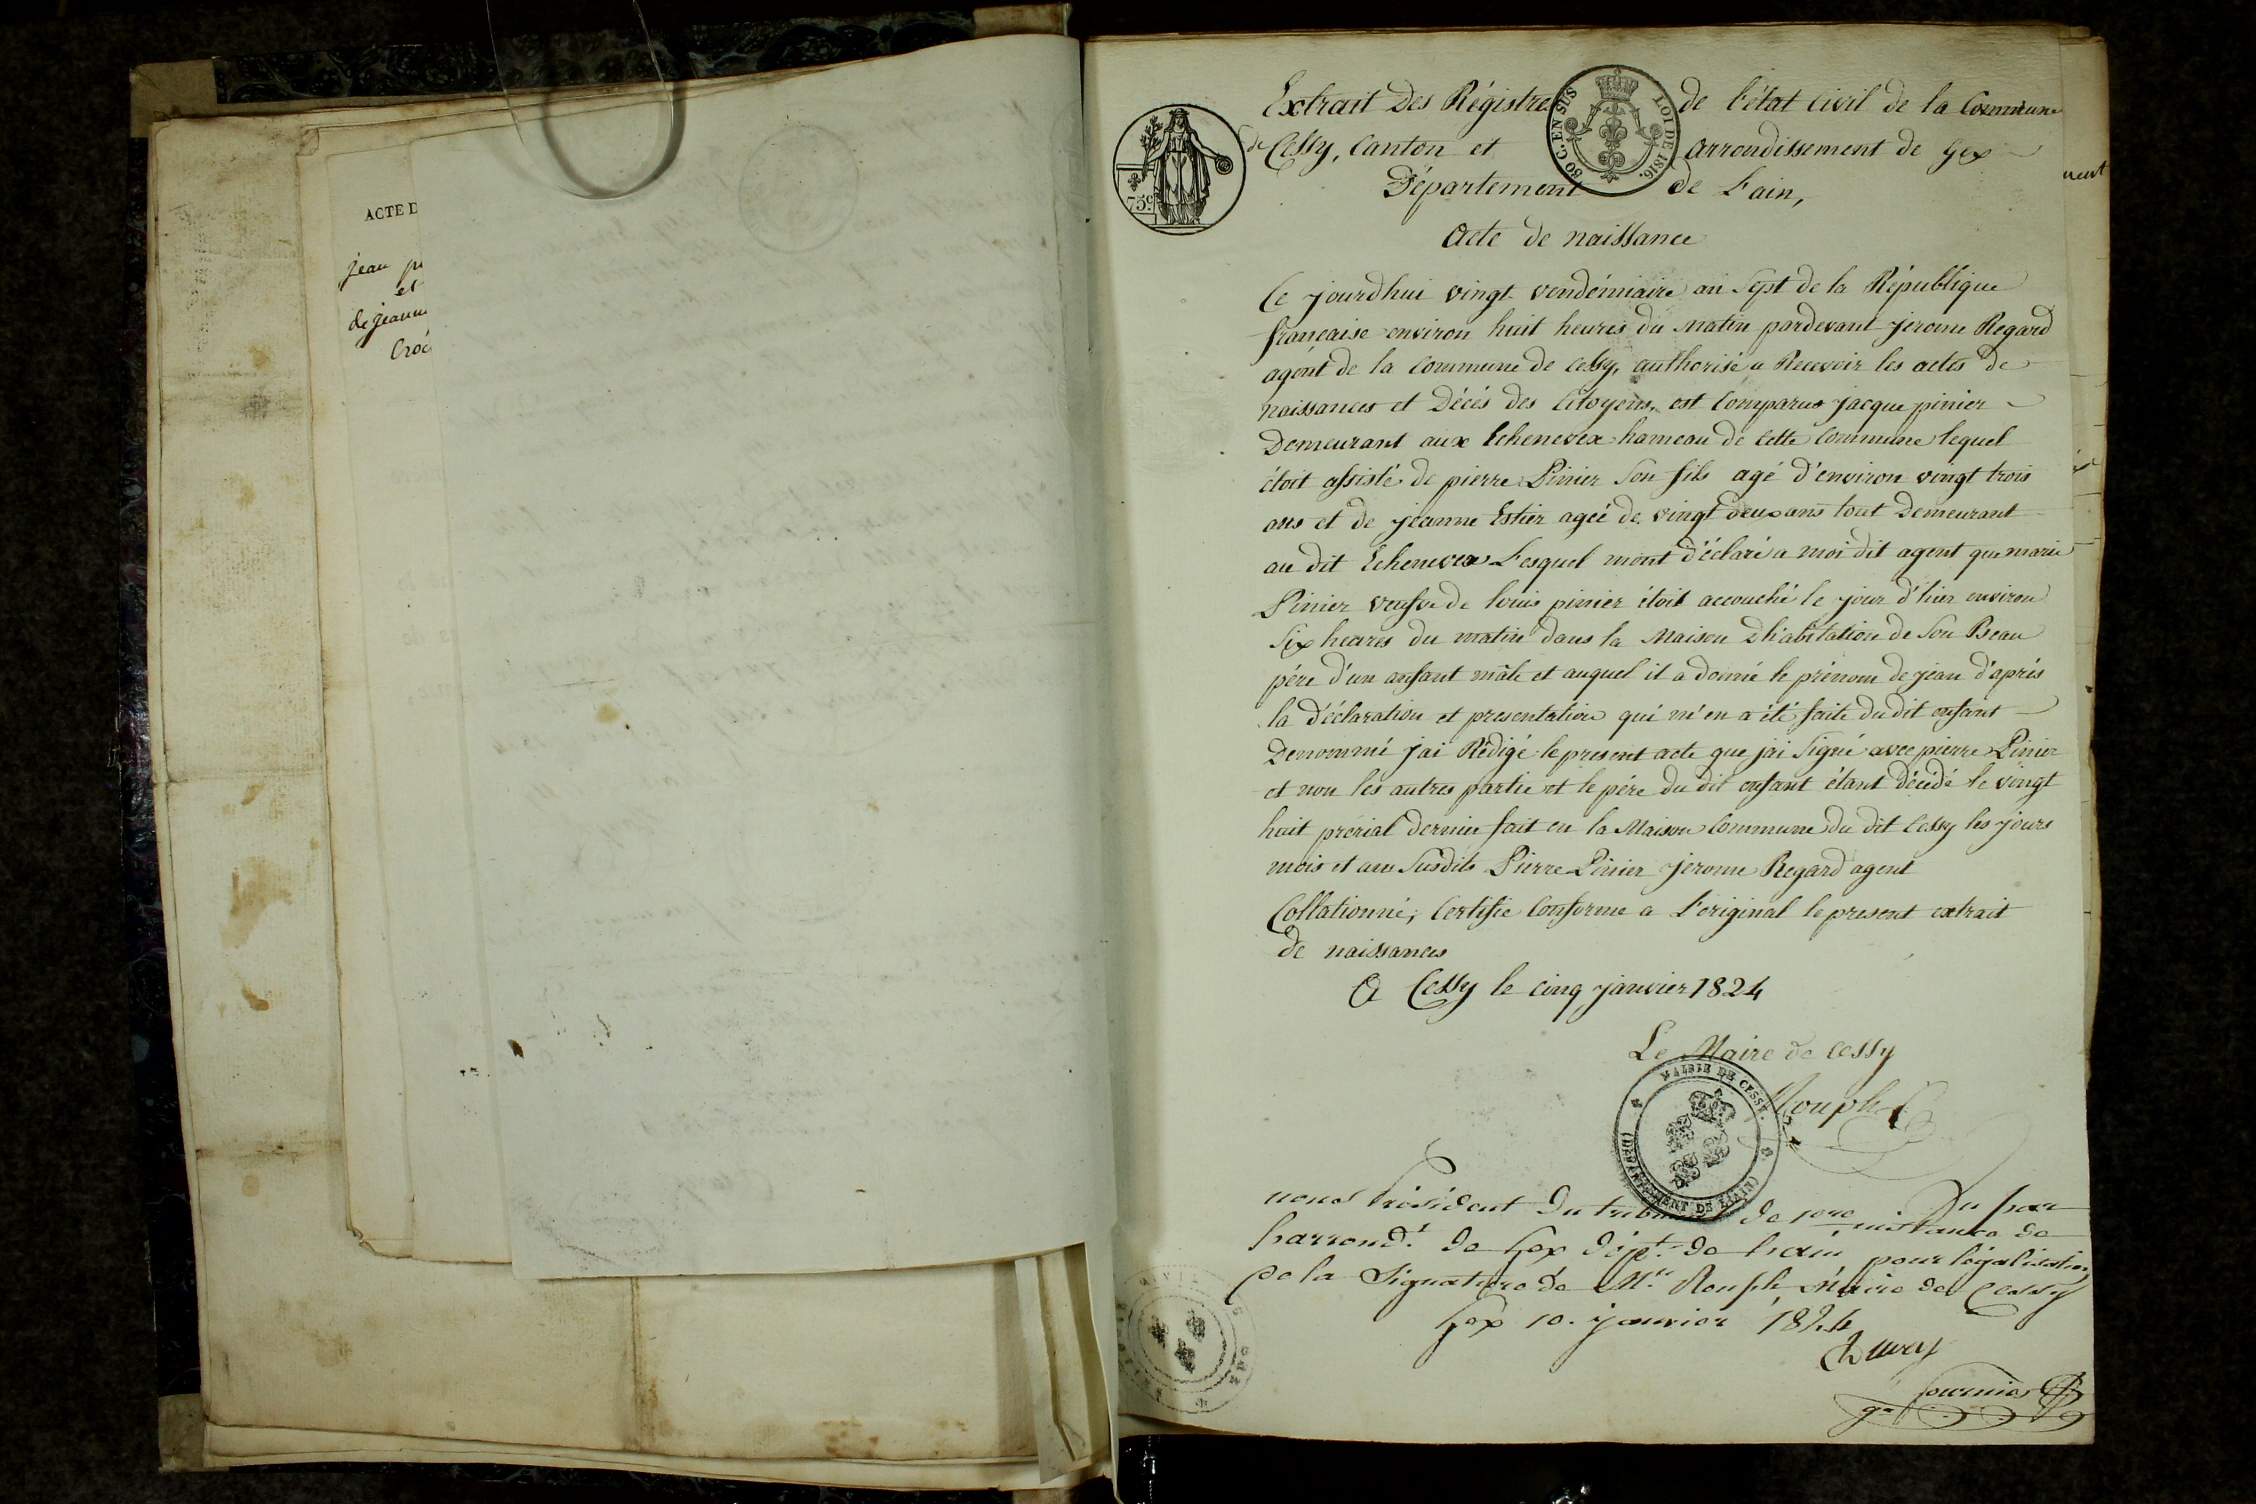 ACTE D
jean pi
et
de jeann
Croc
Extrait Des Régistre de l'état Civil de la Commune
de Cessy, Canton et arrondissement de Gex
Département de L'ain,
Acte de naissance
Ce jourdhui vingt vendémiaire an Sept de la République
française environ huit heures du matin pardevant jerome Regard
agent de la Commune de Cessy, authorisé a Recevoir les actes de
naissances et Décés des Citoyens, est Comparus jacque pinier
Demeurant aux Echenevex hameau de cette Commune lequel
étoit assisté de pierre Pinier Son fils agé d'environ vingt trois
ans et de jeanne Estier agée de vingt deux ans tout Demeurant
au dit Echenevex Lesquel mont d'éclaré a moi dit agent que marie
Pinier veufve de louis pinier étoit accouché le jour d'hier environ
Six heures du matin dans la Maison D'habitation de Son Beau
pére d'un enfant mâle et auquel il a donné le prénom de jean d'aprés
la d'éclaration et presentation qui m'en a été faite du dit enfant
Denommé j'ai Rédigé le present acte que jai Signé avec pierre Pinier
et non les autres partie et le pére du dit enfant étant décédé le vingt
huit prérial dernier fait en la Maison Commune du dit Cessy les jours
mois et ans Susdits Pierre Pinier jerome Regard agent
Collationné, Certifie Conforme a L'original le present extrait
de naissances
A Cessy le cinq janvier 1824
Le Maire de Cessy
Rouph
nous Président du tribunal de 1ere instance de
l'arrond.t de Gex dép.t de l'ain pour légalisation
de la Signature de Mr. Rouph Maire de Cessy
Gex 10. janvier 1824
Vu par
fournier
75 c
80 C. EN SUS
LOI DE 1816.
MAIRIE DE CESSY.
(DEPARTEMENT DE L'AIN)